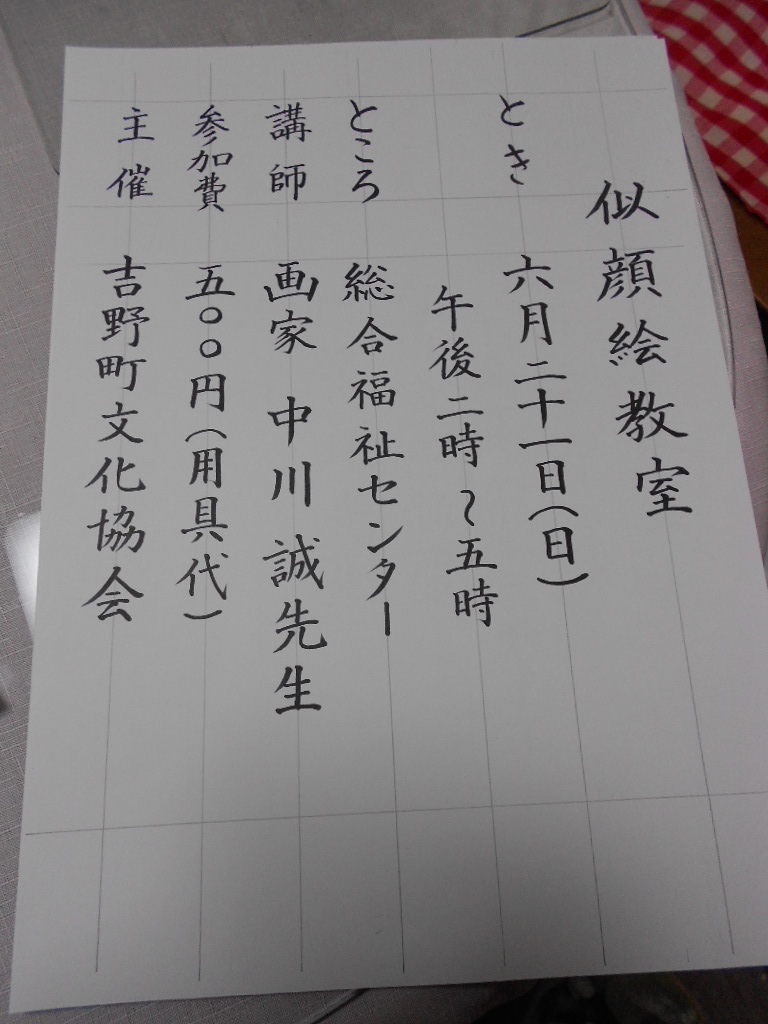 似顔絵教室
とき 六月二十一日(日)
午後二時～五時
ところ 総合福祉センター
講師 画家 中川誠先生
参加費 五〇〇円(用具代)
主催 吉野町文化協会